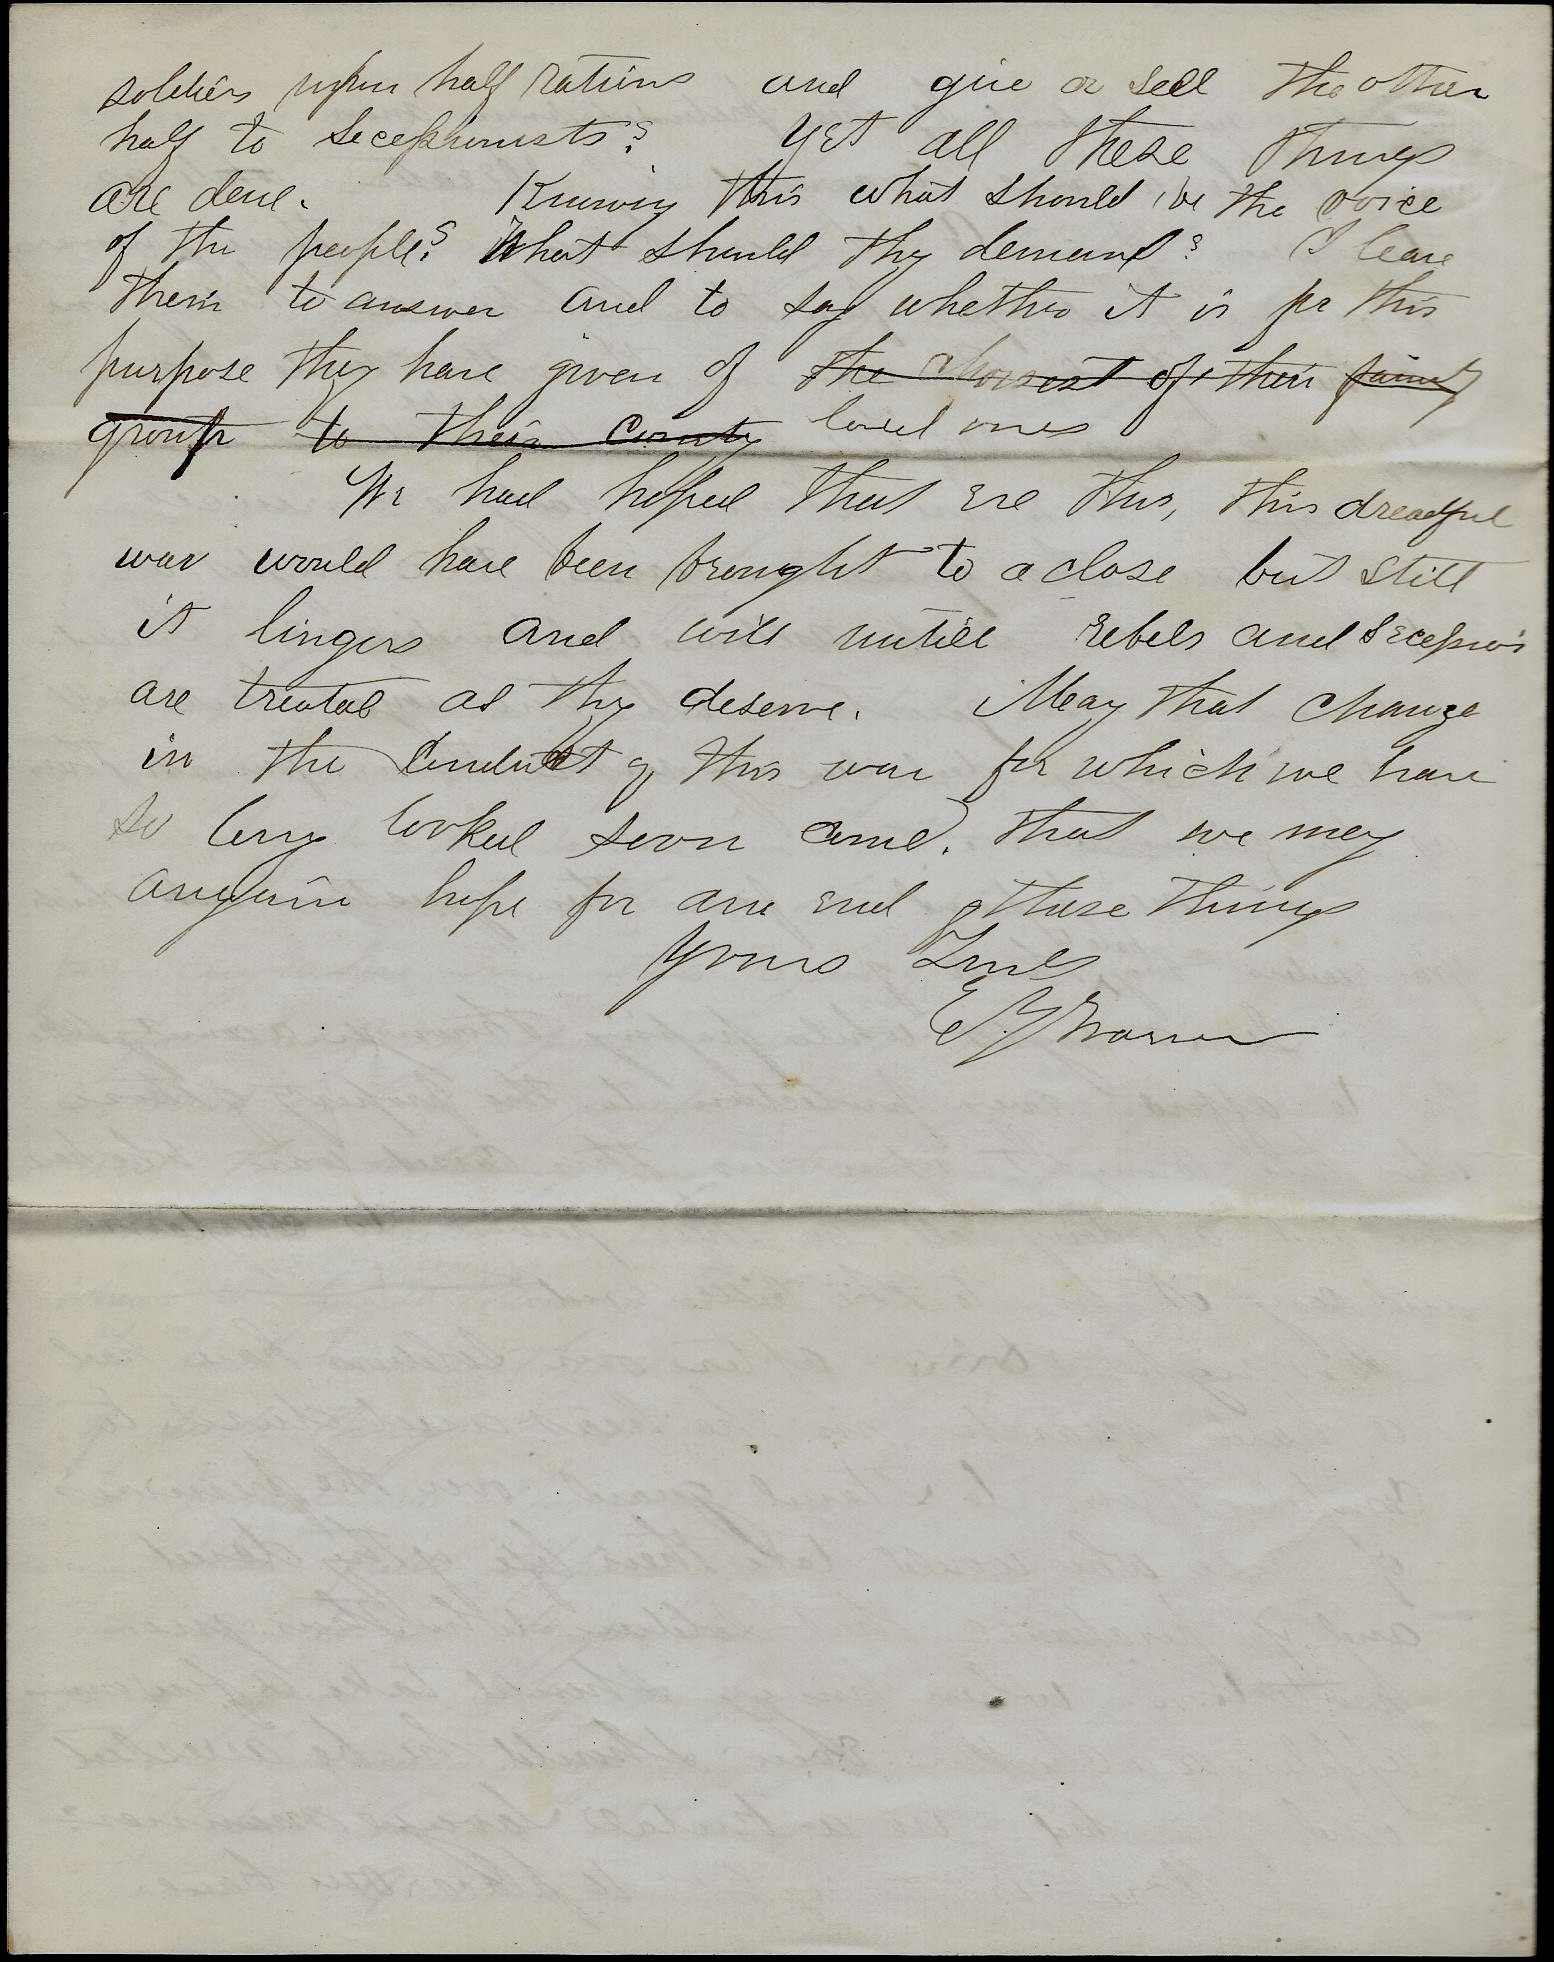 soldiers upon half rations and give or sell the other
half to Secessionists? Yet all these things
are done. Knowing this what should be the voice
of the people? What should thy demand? I leave
them to answer and to say whether it is for this
purpose they have given of the choisest of their family
group to their country loved ones
We had hoped that ere this, this dreadful
war would have been brought to a close but still
it lingers and will untill rebels and Secessions
are treated as thy deserve. May that change
in the conduct of this war for which we have
so long looked soon come. that we may
hope for an end of these things
Yours Truly